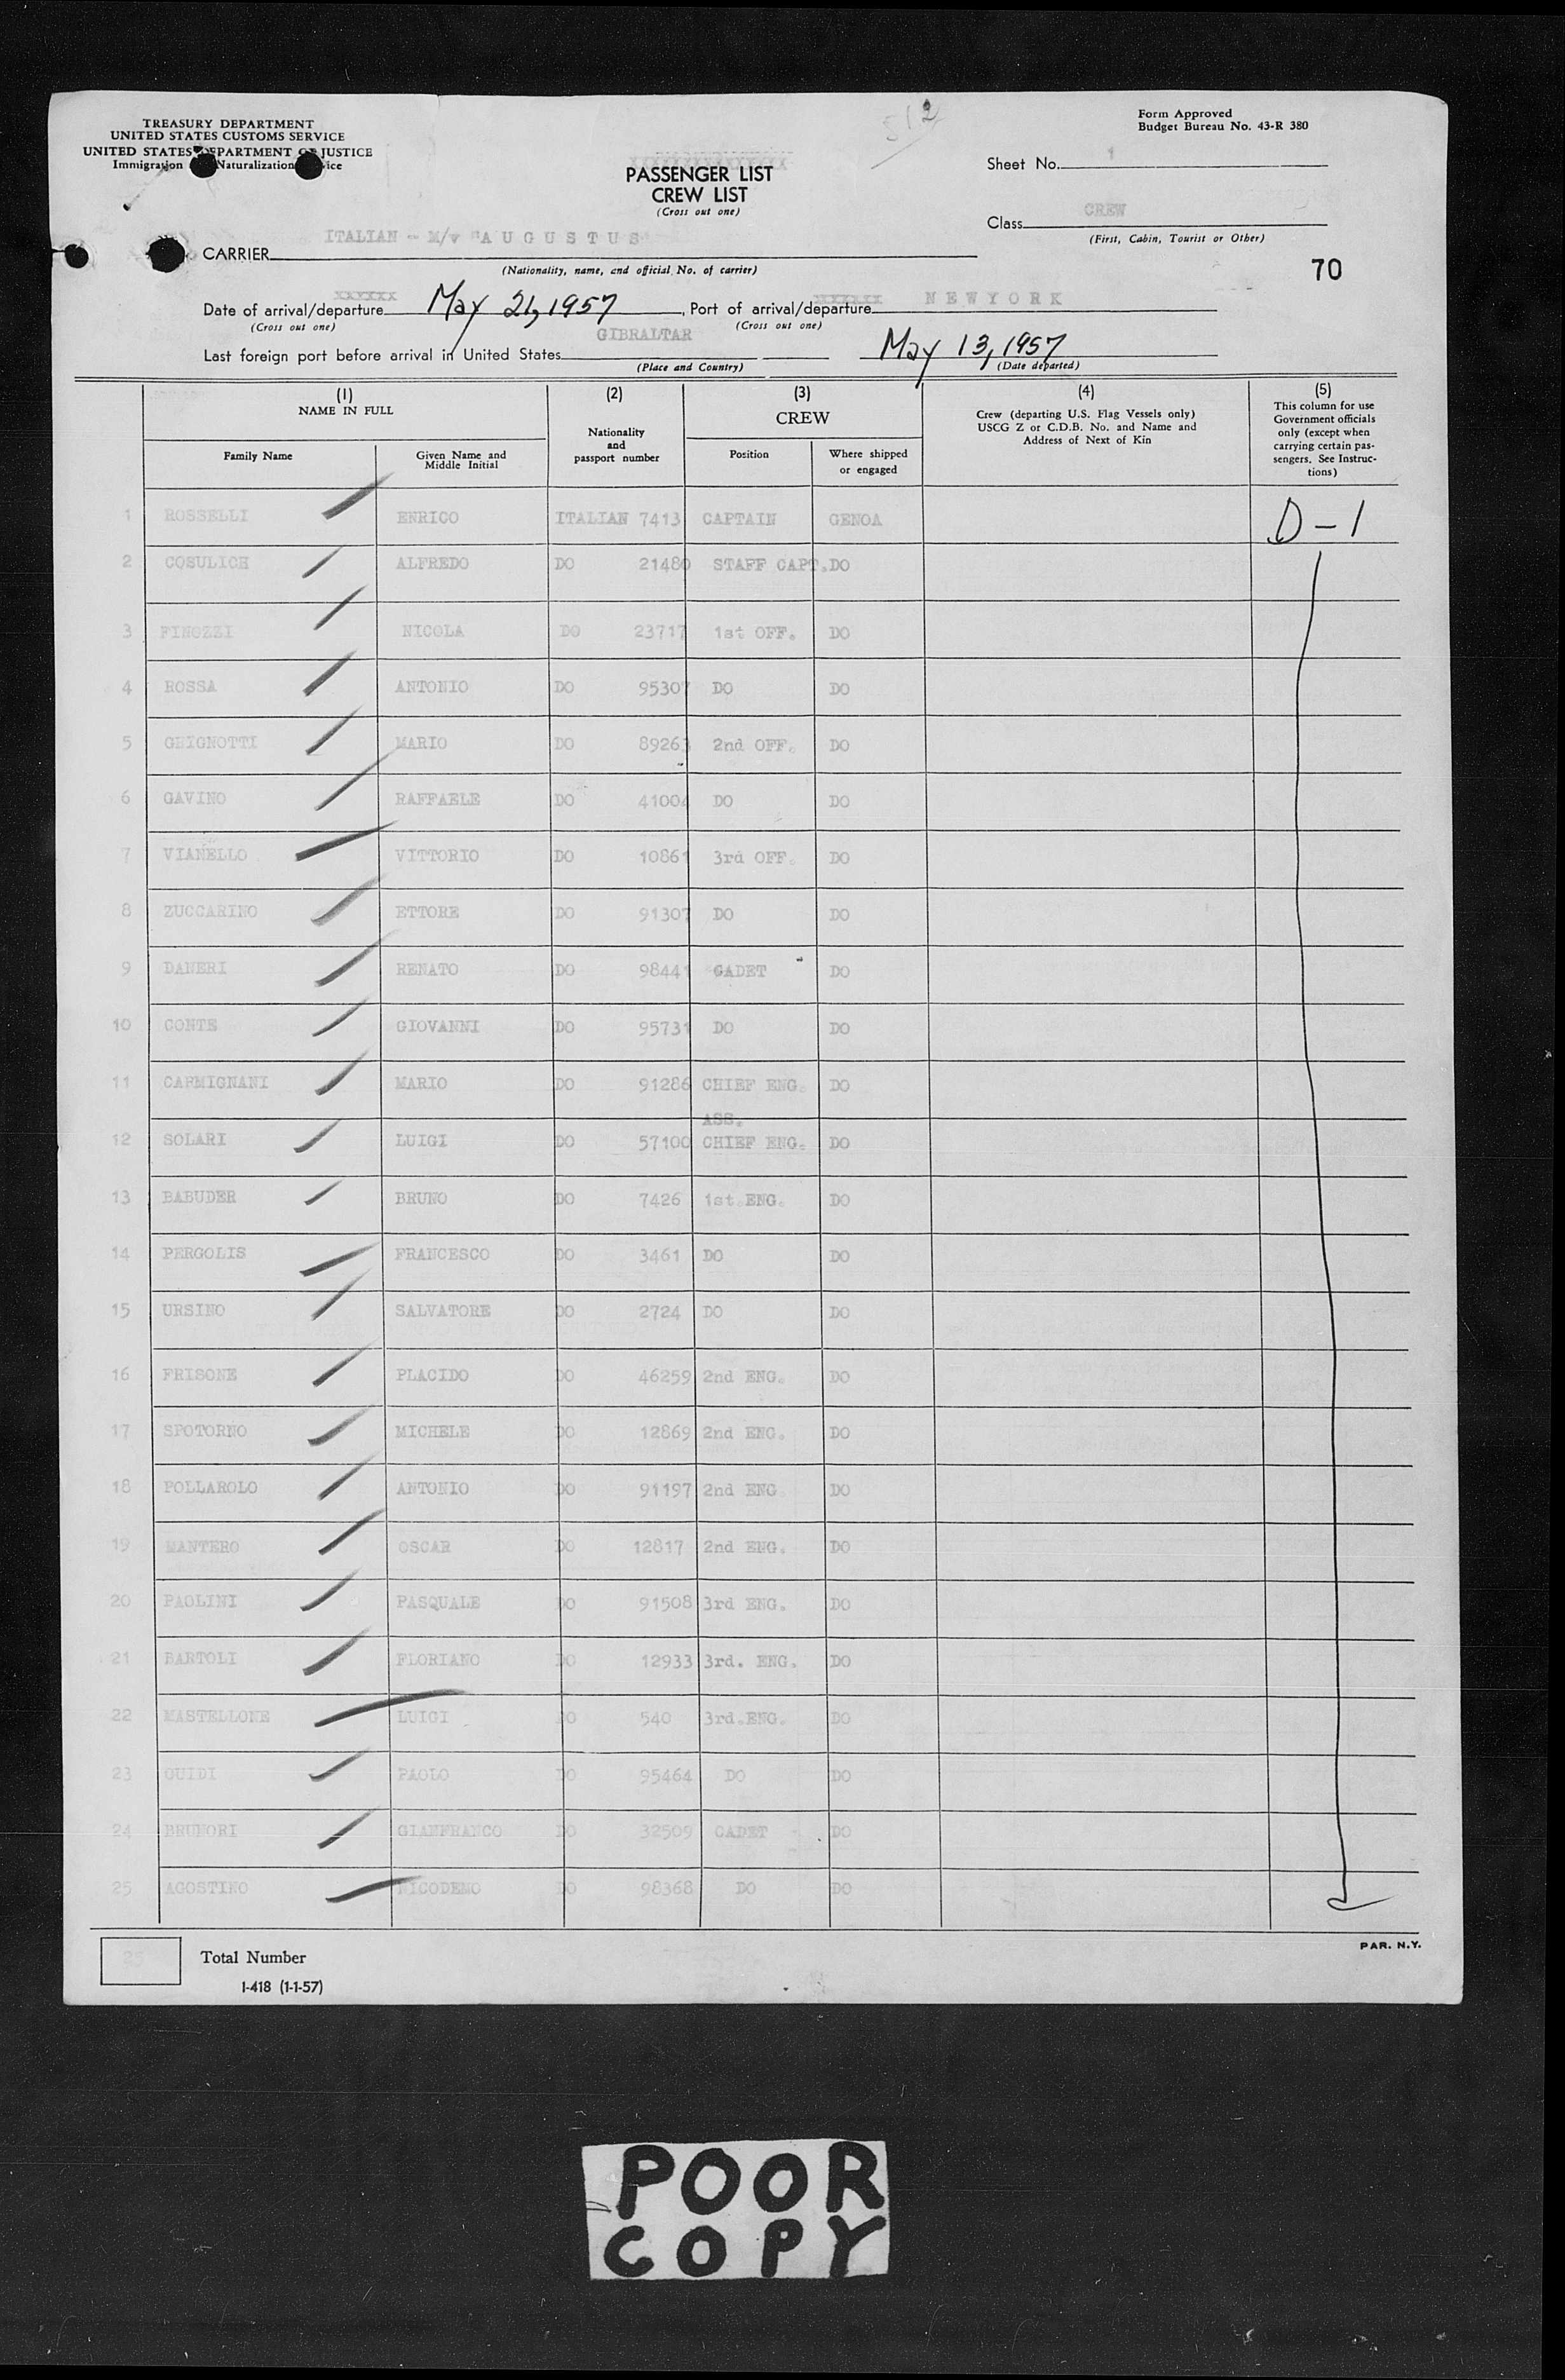 TREASURY DEPARTMENT
UNITED STATES CUSTOMS SERVICE
UNITED STATES DEPARTMENT OF JUSTICE
Immigration Naturalization ice
512
Form Approved
Budget Bureau No. 43-R 380
XXXXXXXXXXXXXX
PASSENGER LIST
CREW LIST
(Cross out one)
Sheet No. 1
Class CREW
(First, Cabin, Tourist or Other)
CARRIER ITALIAN - M/v "AUGUSTUS"
(Nationality, name, and official No. of carrier)
70
Date of arrival/departure XXXXXX May 21, 1957, Port of arrival/departure XXXXXX NEWYORK
(Cross out one) (Cross out one)
Last foreign port before arrival in United States GIBRALTAR May 13, 1957
(Place and Country) (Date departed)
(1) NAME IN FULL
Family Name
Given Name and Middle Initial
(2) Nationality and passport number
(3) CREW
Position
Where shipped or engaged
(4) Crew (departing U.S. Flag Vessels only) USCG Z or C.D.B. No. and Name and Address of Next of Kin
(5) This column for use Government officials only (except when carrying certain passengers. See Instructions)
1 ROSSELLI ENRICO ITALIAN 7413 CAPTAIN GENOA D-1
2 COSULICH ALFREDO DO 21480 STAFF CAPT. DO
3 FINOZZI NICOLA DO 23717 1st OFF. DO
4 ROSSA ANTONIO DO 95307 DO DO
5 GHIGNOTTI MARIO DO 89263 2nd OFF. DO
6 GAVINO RAFFAELE DO 41004 DO DO
7 VIANELLO VITTORIO DO 10861 3rd OFF. DO
8 ZUCCARINO ETTORE DO 91307 DO DO
9 DANERI RENATO DO 98441 CADET DO
10 CONTE GIOVANNI DO 95731 DO DO
11 CARMIGNANI MARIO DO 91286 CHIEF ENG. DO
12 SOLARI LUIGI DO 57100 ASS. CHIEF ENG. DO
13 BABUDER BRUNO DO 7426 1st.ENG. DO
14 PERGOLIS FRANCESCO DO 3461 DO DO
15 URSINO SALVATORE DO 2724 DO DO
16 FRISONE PLACIDO DO 46259 2nd ENG. DO
17 SPOTORNO MICHELE DO 12869 2nd ENG. DO
18 POLLAROLO ANTONIO DO 91197 2nd ENG DO
19 MANTERO OSCAR DO 12817 2nd ENG. DO
20 PAOLINI PASQUALE DO 91508 3rd ENG. DO
21 BARTOLI FLORIANO DO 12933 3rd. ENG. DO
22 MASTELLONE LUIGI DO 540 3rd.ENG. DO
23 GUIDI PAOLO DO 95464 DO DO
24 BRUNORI GIANFRANCO DO 32509 CADET DO
25 AGOSTINO NICODEMO DO 98368 DO DO
25 Total Number
I-418 (1-1-57)
PAR. N.Y.
POOR
COPY